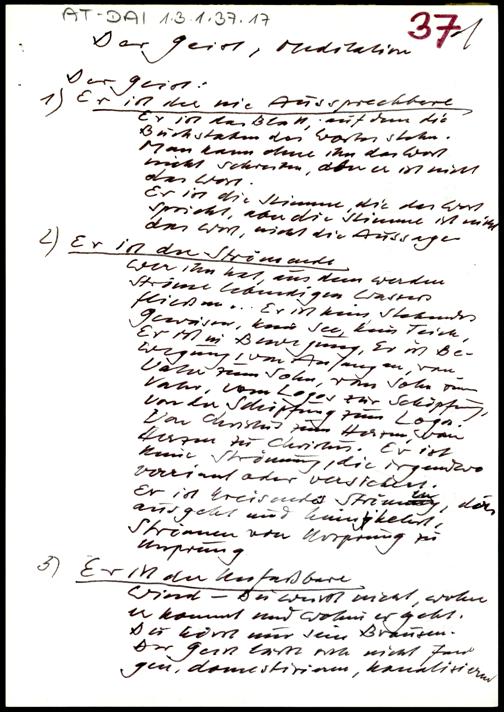 AT-DAI 1.3.1.37.17
37
Der Geist, Meditation
Der Geist:
1) Er ist der nie Aussprechbare
Er ist das Blatt, auf dem die
Buchstaben des Wortes stehn.
Man kann ohne ihn das Wort
nicht schreiben, aber er ist nicht
das Wort.
Er ist die Stimme, die das Wort
spricht, aber die Stimme ist nicht
das Wort, nicht die Aussage
2) Er ist der Strömende
Wer ihn hat, aus dem werden
Ströme lebendigen Wassers
fließen... Er ist kein stehendes
Gewässer, kein See, kein Teich,
Er ist in Bewegung, Er ist Be-
wegung, von Anfang an, vom
Vater zum Sohn, vom Sohn zum
Vater, vom Logos zur Schöpfung,
von der Schöpfung zum Logos.
Von Christus zum Herzen, vom
Herzen zu Christus. Er ist
keine Strömung, die irgendwo
verrinnt oder versickert.
Er ist kreisendes Strömen, das
ausgeht und heimkehrt,
Strömen von Ursprung zu
Ursprung
3) Er ist der Unfaßbare
Wind – Du weißt nicht, woher
er kommt und wohin er geht.
Du hörst nur sein Brausen.
Der Geist läßt sich nicht fan
gen, domestizieren, kanalisieren